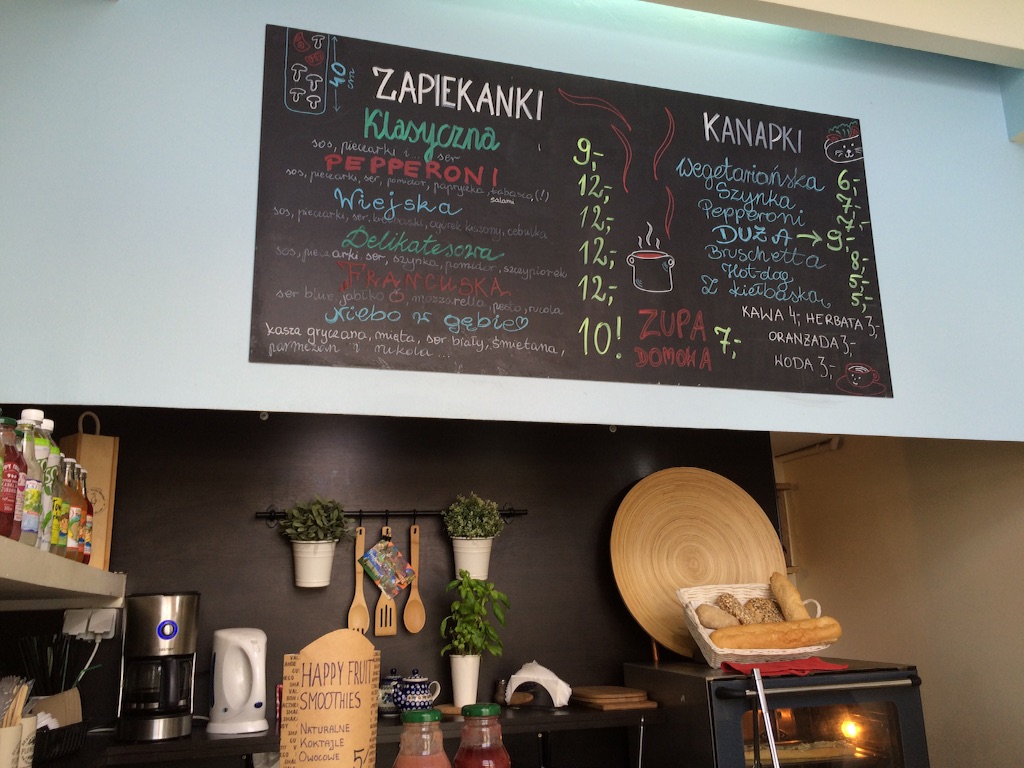 40 cm
ZAPIEKANKI
Klasyczna 9,-
sos, pieczarki i... ser
PEPPERONI 12,-
sos, pieczarki, ser, pomidor, papryczka, tabasco, (!)
salami
Wiejska 12,-
sos, pieczarki, ser, kiełbaski, ogórek kiszony, cebulka
Delikatesowa 12,-
sos, pieczarki, ser, szynka, pomidor, szczypiorek
FRANCUSKA 12,-
ser blue, jabłko, mozzarella, pesto, rucola
Niebo w gębie 10!
kasza gryczana, mięta, ser biały, śmietana,
parmezan i rukola...
ZUPA
DOMOWA 7,-
KANAPKI
Wegetariańska 6,-
Szynka 7,-
Pepperoni 7,-
DUŻA → 9,-
Bruschetta 8,-
Hot-dog 5,-
Z kiełbaską 5,-
KAWA 4,- HERBATA 3,-
ORANŻADA 3,-
WODA 3,-
HAPPY FRUIT
SMOOTHIES
NATURALNE
KOKTAJLE
OWOCOWE